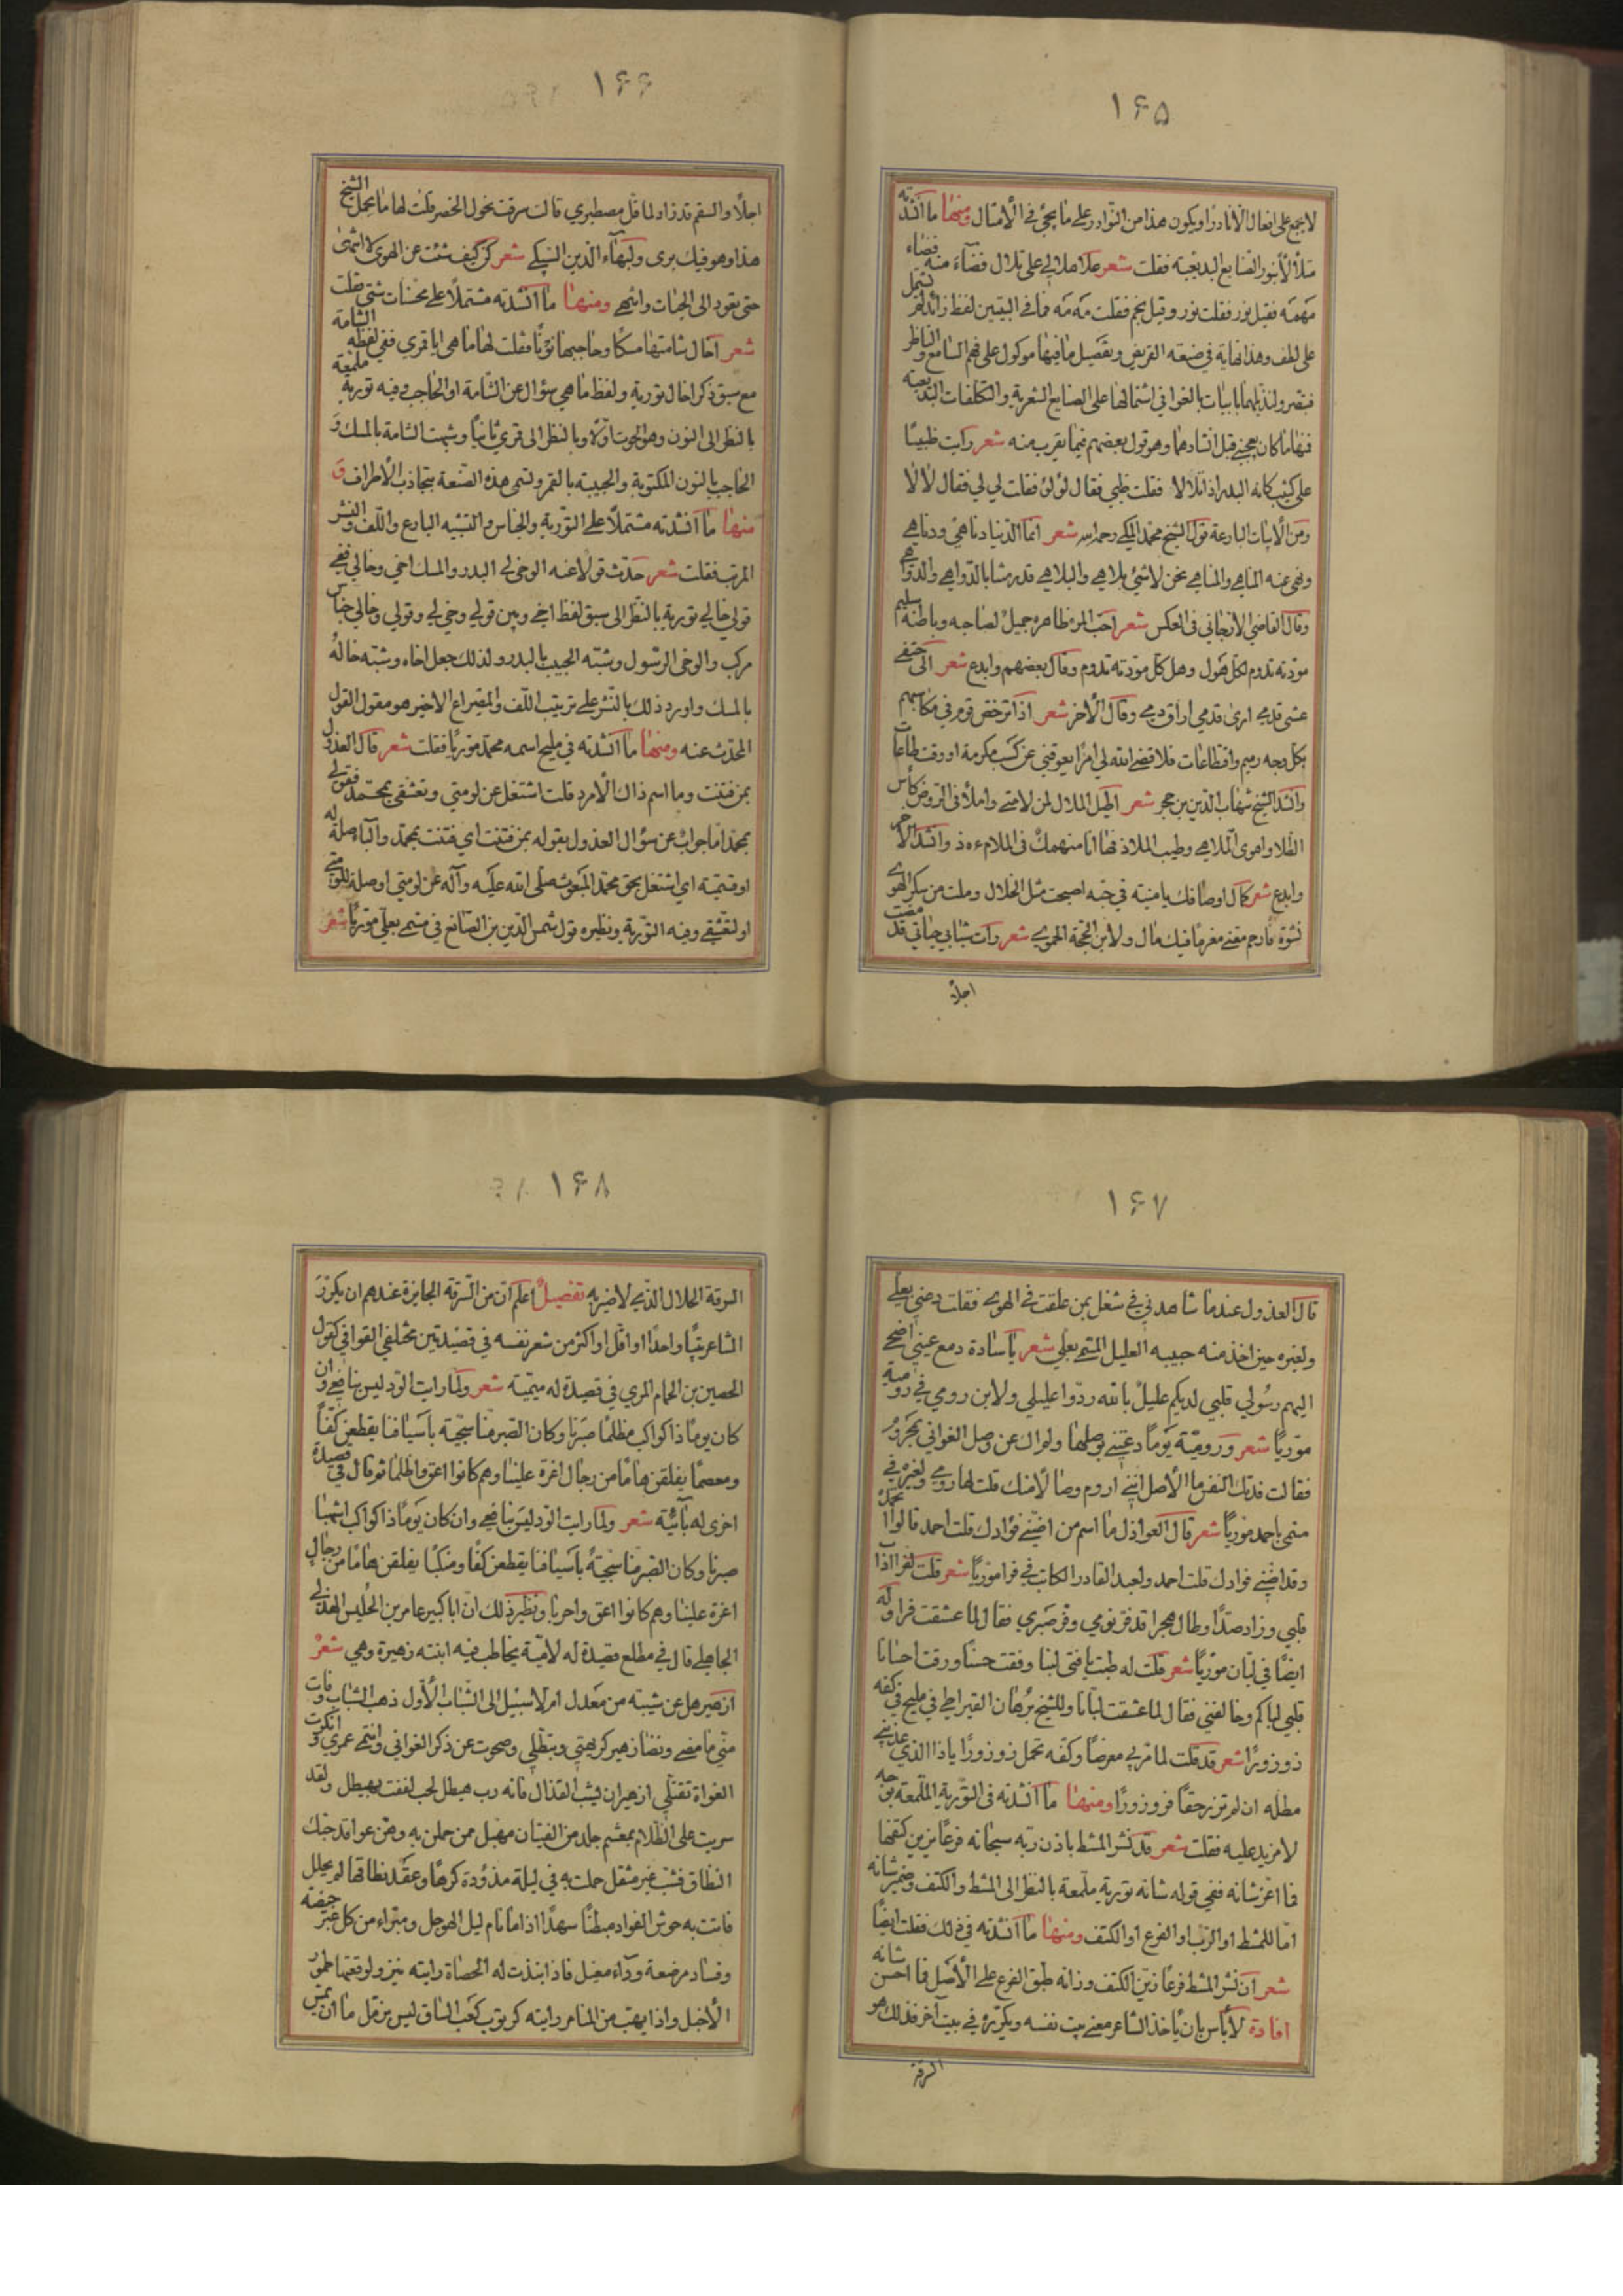 ۱۶۵
لا يجمع على افعال الا نادرا ويكون هذا من النوادر على ما يجئ في الامثال ومنها ما انشدته
متلألأ بنور الصنايع البديعية فقلت شعر علا هلالي على تلال فضاء منه فضاء
مهمه فقيل نور فقلت نور وقيل نجم فقلت مه مه فما في البيتين لفظ زائد لم يشمل
على لطف وهذا نهاية في صنعة القريض وتفصيل ما فيها موكول على فهم السامع والناظر
فبتصر ولنذيلهما بابيات بالغوا في اشتمالها على الصنايع الشعرية والتكلفات البديعية
فمنها ما كان يعجبني قبل انشادها وهو قول بعضهم فيما يقرب منه شعر رايت ظبيا
على كثيب كانه البدر اذ تلالا فقلت ظبي فقال لؤلؤ فقلت لي لي فقال لا لا
ومن الابيات البارعة قول الشيخ محمد المكي رحمه الله شعر انما الدنيا دناهي ودناهي
ونهى عنه المناهي والمناهي نحن لا شئ بلاهي والبلاهي قد رمتنا بالدواهي والدواهي
وقال القاضي الارجاني في العكس شعر احب المرء ظاهره جميل لصاحبه وباطنه سليم
مودته تدوم لكل هول وهل كل مودته تدوم وقال بعضهم وابدع شعر الى حتفي
مشى قدمي ارى قدمي اراق دمي وقال الآخر شعر اذا ترخص قوم في مكاسبهم
بكل وجه رميم واقتطاعات فلا قضى الله لي امرا يعوقني عن كسب مكرمة او وقت طاعات
وانشد الشيخ شهاب الدين بن حجر شعر اطيل الملال لمن لامني واملأ في الروض كأس
الطلا واهوى الملاهي وطيب الملاذ فها انا منهمك في الملا وانشد الآخر
وابدع شعر كمال اوصافك يا منيته في حبه اصبحت مثل الخلال وملت من سكر الهوى
نشوة فارحم معنى مغرما فيك مال ولابن الحجة الحموي شعر رأت شبابي حياتي قد مضت
اجلا
۱۶۶
اجلا والسقم قد زاد لما قل مصطبري قالت سرقت نحول الخصر قلت لها ما يحمل الشيخ
هذا وهو فيك بري ولبهاء الدين السبكي شعر كن كيف شئت عن الهوى لا انتهى
حتى يقود الى الحيات وانتهي ومنها ما انشدته مشتملا على محسنات شتى قلت
شعر اخال شامتها مسكا وحاجبها نونا فقلت لها ما هي ايا قمري ففي لفظه الشامة
مع سبق ذكر اخال تورية ولفظ ما هي سؤال عن الشامة او الحاجب وفيه تورية ملمعة
بالنظر الى النون وهو الحوت اولا وبالنظر الى قمري ثانيا وشبهت الشامة بالمسك و
الحاجب بالنون المكتوبة والحبيبة بالقمر وتسمى هذه الصنعة بتجاذب الاطراف و
منها ما انشدته مشتملا على التورية والجناس والتشبيه البارع واللف والنشر
المرتب فقلت شعر حدثت قولا عنه الوحى لي البدر والمسك اخي وخالي ففي
قولي خالي تورية بالنظر الى سبق لفظ اخي وبين قولي وحي لي وقولي وخالي جناس
مركب والوحى الرسول وشبه الحبيب بالبدر ولذلك جعل اخاه وشبه خاله
بالمسك واورد ذلك بالنشر على ترتيب اللف والمصراع الاخير هو مقول القول
المحدث عنه ومنها ما انشدته في مليح اسمه محمد موريا فقلت شعر قال العذول
بمن فتنت وما اسم ذاك الامرد قلت اشتغل عن لومتي وتعشقي بمحمد فقولي
بمحمد اما جواب عن سؤال العذول بقوله بمن فتنت اي فتنت بمحمد والباء صلة له
او قسمية اي اشتغل بحق محمد المبعوث صلى الله عليه وآله عن لومتي او صلة للومتي
او لتعشقي وفيه التورية ونظيره قول شمس الدين بن الصائغ في متسم بعلي موريا شعر
۱۶۷
قال العذول عندما شاهدني في شغل بمن علقت في الهوى فقلت دعني بعلي
ولغيره حين اخذ منه حبيبه العليل المتسم بعلي شعر يا سادة دمع عيني اضحى
اليهم رسولي قلبي لديكم عليل بالله ردوا عليلي ولابن رومي في رومية
موريا شعر ورومية يوما دعتني لوصلها ولم اك عن وصل الغواني بمجرور
فقالت فدتك النفس ما الاصل انني اروم وصالا منك قلت لها رومي ولغيره في
متسم باحمد موريا شعر قال العواذل ما اسم من اضنى فؤادك قلت احمد قالوا محمد
وقد اضنى فؤادك قلت احمد ولعبد القادر الكاتب في فرا موريا شعر قلت لفرا اذا
قلبي وزاد صدا وطال هجرا قد فر نومي وفر صبري فقال لما عشقت فرا وله
ايضا في لبان موريا شعر قلت له طبت يا فتى لبنا وفقت حسنا ورقت احسانا
قلبي لباكم وخالفني فقال لما عشقت لبانا وللشيخ برهان القيراطي في مليح في كفه
زوزورا شعر قد قلت لما مر بي معرضا وكفه تحمل زوزورا يا ذا الذي عذبني
مطله ان لم تزر حقا فزوزورا ومنها ما انشدته في التورية الملمعة بوجه
لا مزيد عليه فقلت شعر قد نشر المشط باذن ربه سبحانه فرعا يزين كتفها
فما اعز شانه ففي قوله شانه تورية ملمعة بالنظر الى المشط والكتف وضمير شانه
اما للمشط او الرب او الفرع او الكتف ومنها ما انشدته في ذلك فقلت ايضا
شعر ان نشر المشط فرعا زين الكتف وزانه طبق الفرع على الاصل فما احسن شانه
افادة لا بأس بان يأخذ الشاعر معنى بيت نفسه ويكرره في بيت آخر فذلك هو
السرقة
۱۶۸
السرقة الحلال الذي لا ضير به تفصيل اعلم ان من السرقة الجايزة عندهم ان يكرر
الشاعر بيتا واحدا او اقل او اكثر من شعر نفسه في قصيدتين مختلفي القوافي كقول
الحصين بن الحمام المري في قصيدة له ميمية شعر ولما رايت الود ليس بنافعي وان
كان يوما ذا كواكب مظلما صبرنا وكان الصبر منا سجية باسيافنا يقطعن كفا
ومعصما يفلقن هاما من رجال اعزة علينا وهم كانوا اعق واظلما ثم قال في قصيدة
اخرى له بائية شعر ولما رايت الود ليس بنافعي وان كان يوما ذا كواكب اشهبا
صبرنا وكان الصبر منا سجية باسيافنا يقطعن كفا ومنكبا يفلقن هاما من رجال
اعزة علينا وهم كانوا اعق واحربا ونظير ذلك ان ابا كبير عامر بن الحليس الهذلي
الجاهلي قال في مطلع قصيدة له لامية يخاطب فيه ابنته زهيرة وهي شعر
ازهير هل عن شيبة من معدل ام لا سبيل الى الشباب الاول ذهب الشباب وفات
مني ما مضى ونضا زهير كريهتي وتبطلي وصحوت عن ذكر الغواني وانتهى عمري وانكرت
الغواة تقتلي ازهير ان يشب القذال فانه رب هيطل لجب لففت بهيطل ولقد
سريت على الظلام بمغشم جلد من الفتيان مهبل ممن حملن به وهن عواقد حبك
النطاق فشب غير مثقل حملت به في ليلة مذؤدة كرها وعقد نطاقها لم يحلل
فاتت به حوش الفؤاد مبطنا سهدا اذا ما نام ليل الهوجل ومبراء من كل غبر حيضة
وفساد مرضعة وداء مغيل فاذا نبذت له الحصاة رايته ينزو لوقعتها طمور
الاخيل واذا يهب من المنام رايته كرتوب كعب الساق ليس بزمل ما ان يمس